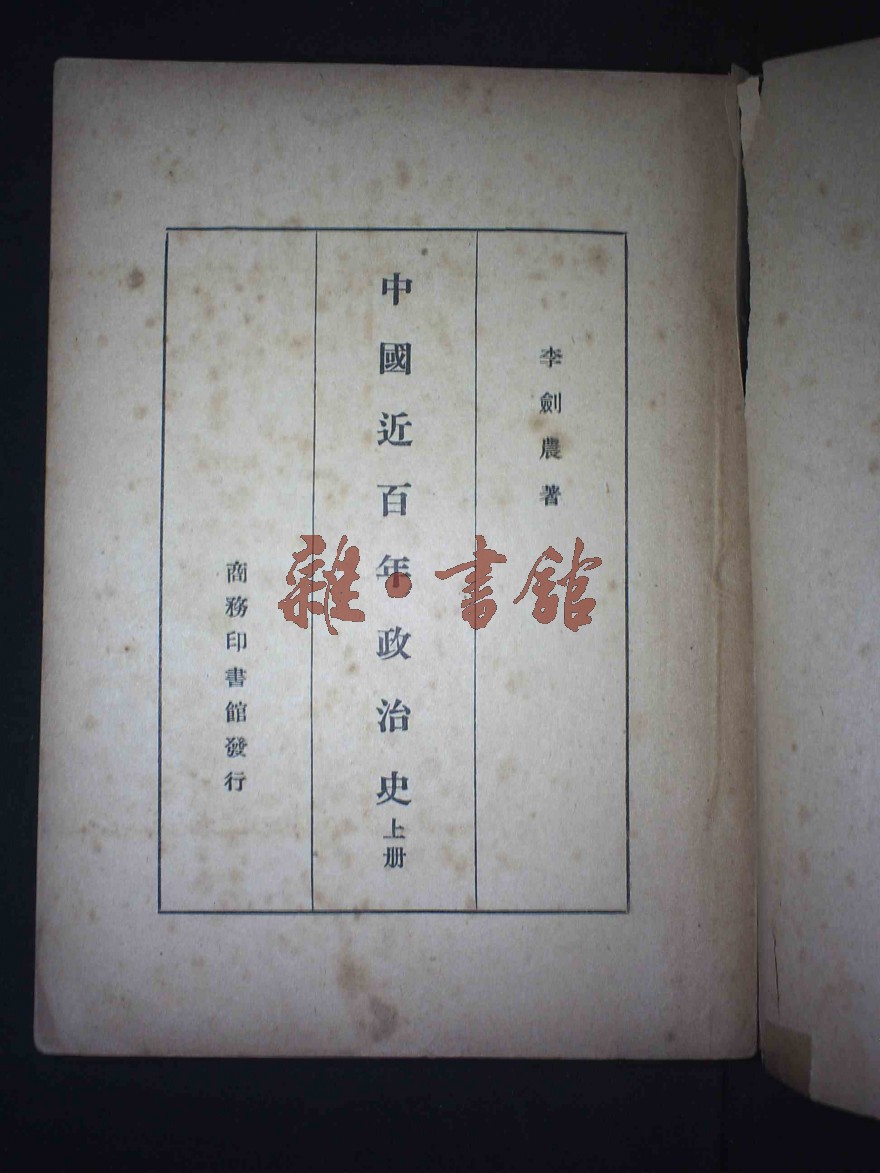 李劍農著
中國近百年政治史上册
商務印書館發行
雜·書館